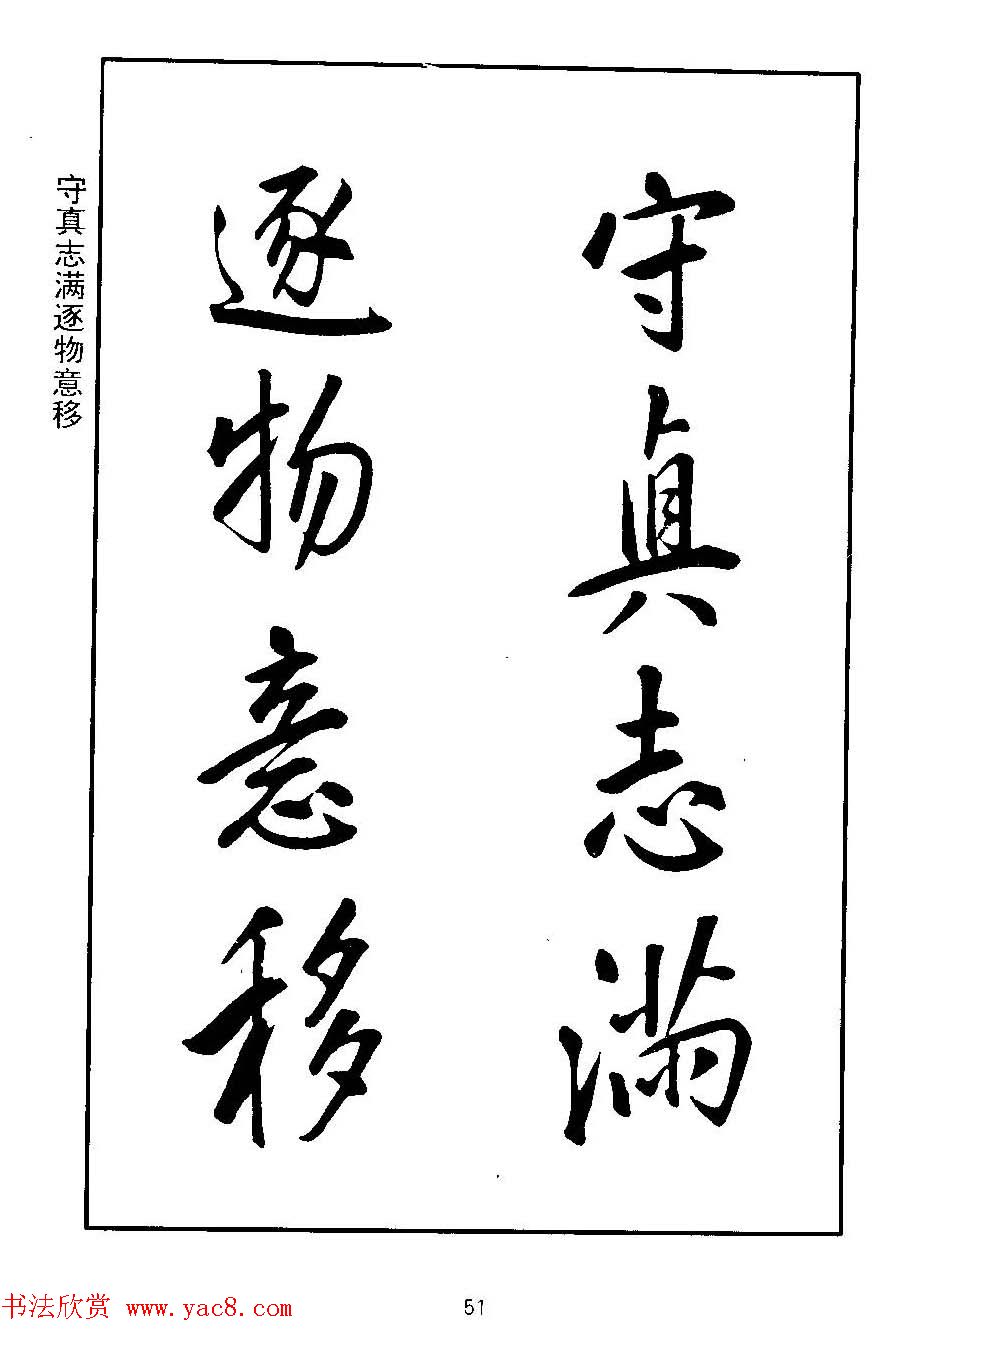 守真志满
逐物意移
守真志满逐物意移
书法欣赏 www.yac8.com
51